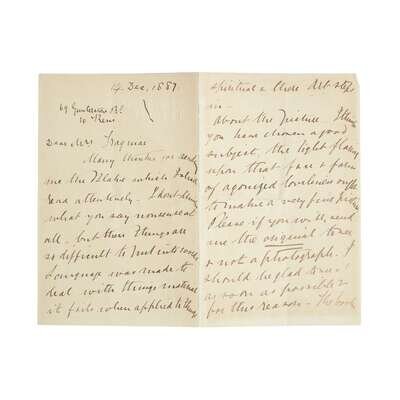 14 Dec, 1887.
Dear Mrs
Many thanks for sending
me the Blake which I shall
read attentively. I don't think
what you say nonsense at
all. but these things are
so difficult to put into words
language was made to
deal with things material
it fails when applied to things
spiritual & there Art steps
in —
About the Picture I think
you have chosen a good
subject, the light playing
upon that face & form
of agonized loveliness ought
to make a very fine
Please if you will, send
me the original
& not a photograph. I
should be glad to
as soon as possible
for this reason — The book